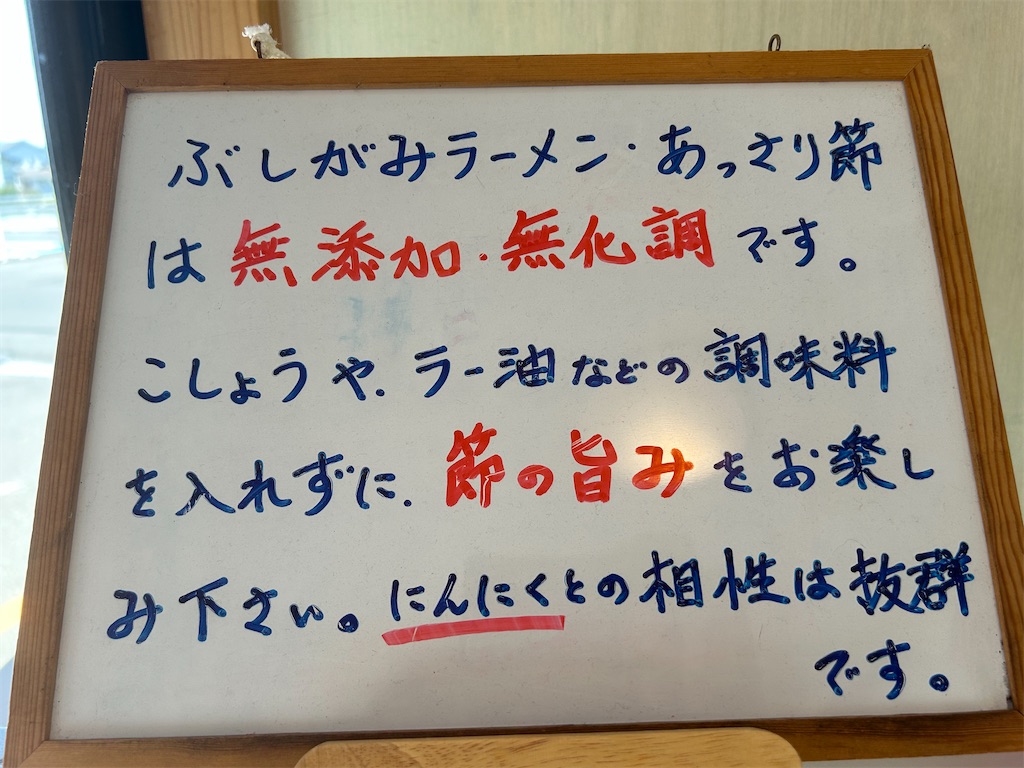 ぶしがみラーメン・あっさり節
は無添加・無化調です。
こしょうや、ラー油などの調味料
を入れずに、節の旨みをお楽し
み下さい。にんにくとの相性は抜群
です。